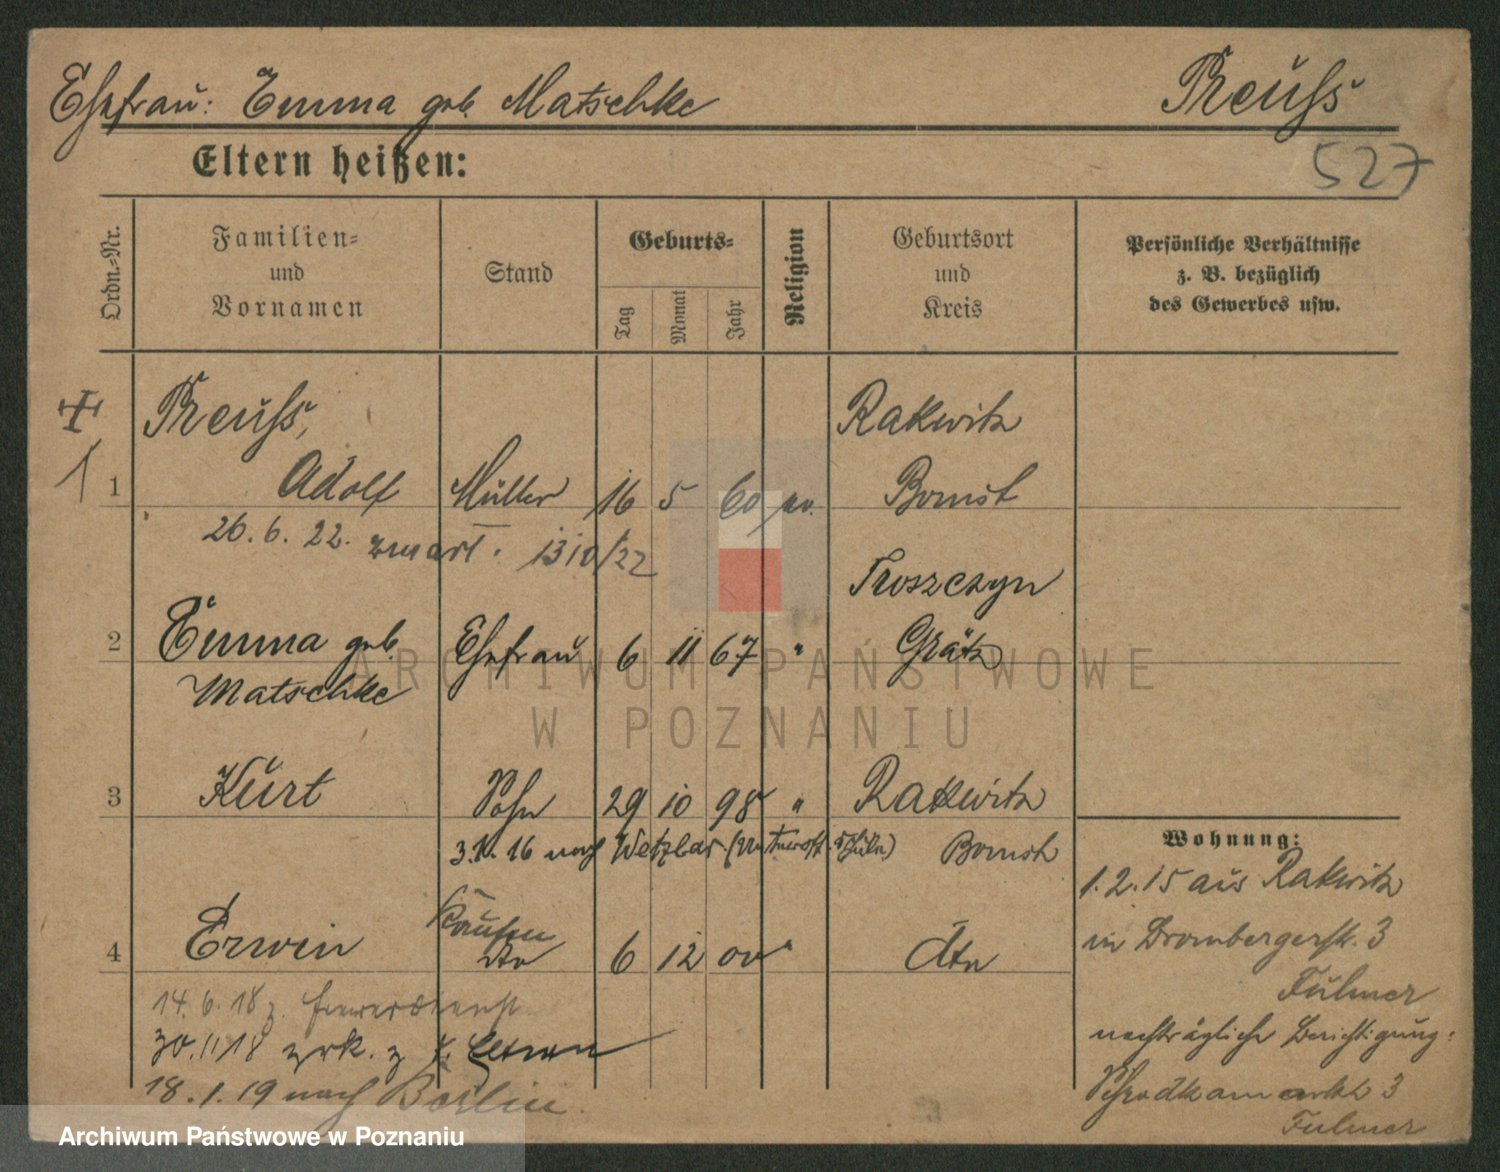 Ehefrau: Emma geb. Matschke
Preuss
Eltern heißen:
527
Ordn.-Nr.
Familien-
und
Vornamen
Stand
Geburts-
Tag
Monat
Jahr
Religion
Geburtsort
und
Kreis
Persönliche Verhältnisse
z. B. bezüglich
des Gewerbes usw.
Preuss,
Rakwitz
1 Adolf Müller 16 5 60 ev. Bomst
26. 6. 22. zmarł. 1310/22
Troszczyn
2 Emma geb. Ehefrau 6 11 67 " Grätz
Matschke
3 Kurt Sohn 29 10 98 " Rakwitz
16 nach Wetzlar Bomst
4 Erwin dto 6 12 00 " dto
14. 6. 18 z.
30.11.18 zrk. z. s. Eltern
18.1.19 nach Berlin
Wohnung:
1. 2. 15 aus Rakwitz
in Brombergerstr. 3
Fulmer
nachträgliche Berichtigung:
Schrodkamarkt 3
Fulmer
ARCHIWUM PAŃSTWOWE
W POZNANIU
Archiwum Państwowe w Poznaniu